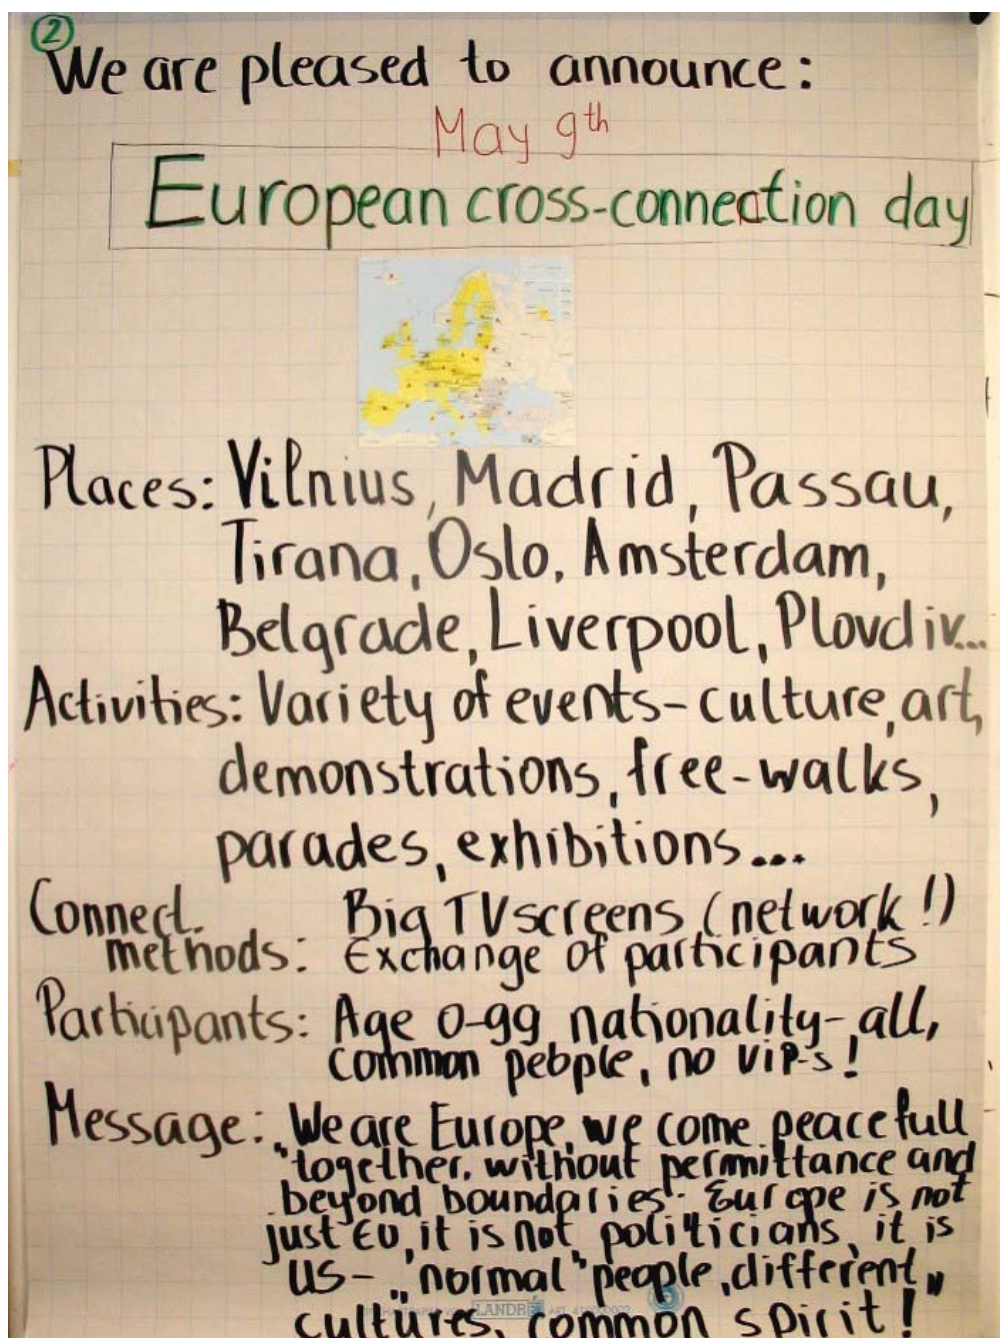 2
We are pleased to announce:
May 9th
European cross-connection day
Places: Vilnius, Madrid, Passau,
Tirana, Oslo, Amsterdam,
Belgrade, Liverpool, Plovdiv...
Activities: Variety of events- culture, art,
demonstrations, free-walks,
parades, exhibitions...
Connect. Big TV screens (network!)
methods: Exchange of participants
Participants: Age 0-99 nationality- all,
common people, no VIP-s!
Message: „We are Europe, we come peacefull
together, without permittance and
beyond boundaries. Europe is not
just EU, it is not politicians, it is
us- „normal" people, different
cultures, common spirit!"
LANDRÉ